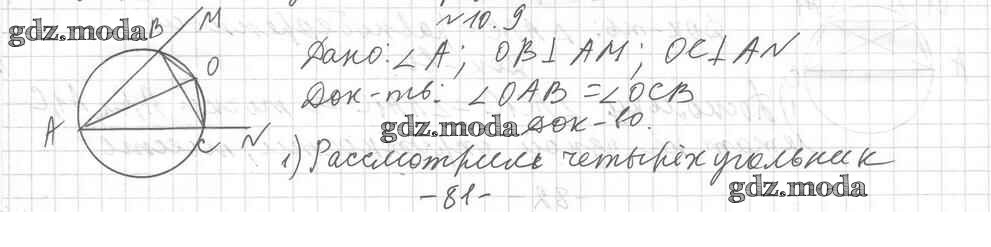 №10.9
gdz.moda
B M
O
A
C N
Дано: ∠A; OB⊥AM; OC⊥AN
Док-ть: ∠OAB=∠OCB
gdz.moda Док-во.
1) Рассмотрим четырёхугольник
-81-
gdz.moda